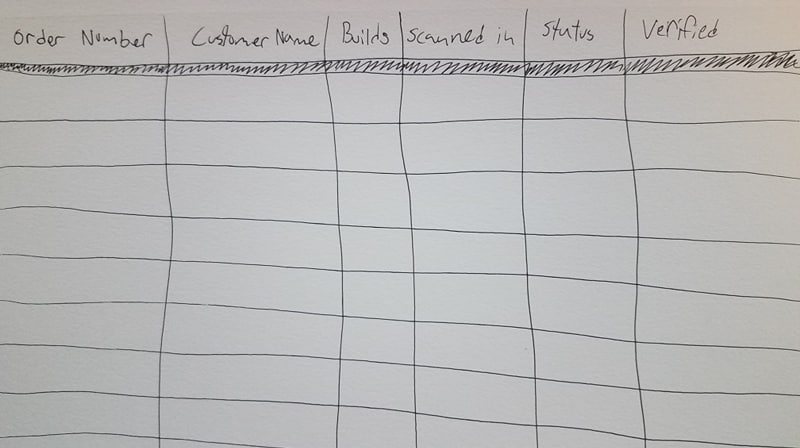 Order Number Customer Name Builds Scanned in Status Verified